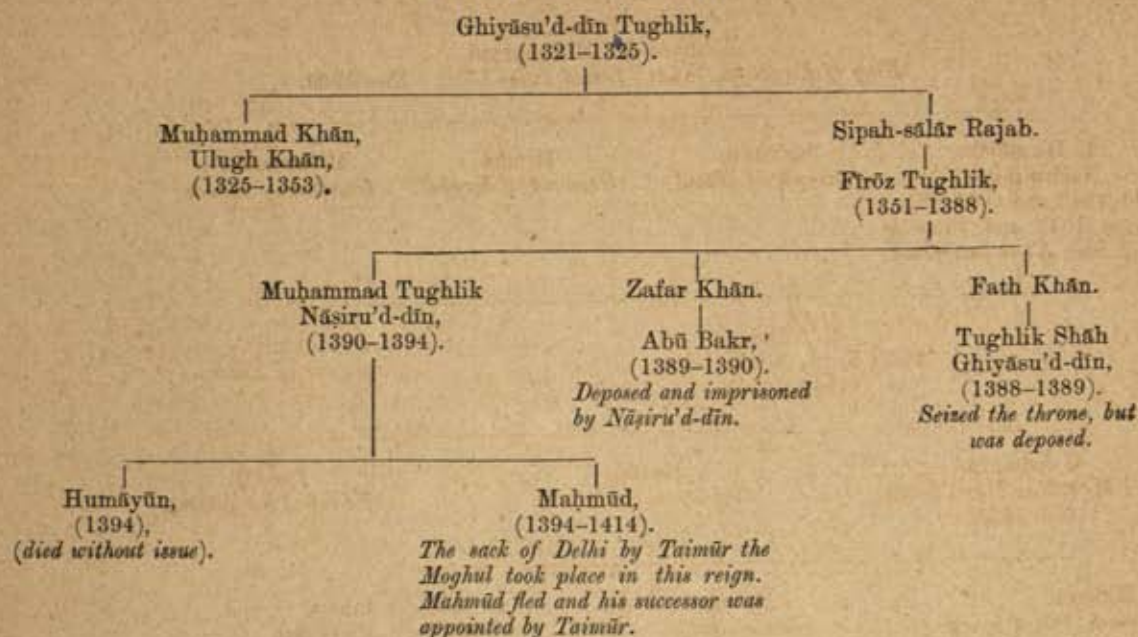 Ghiyāsu'd-dīn Tughlik,
(1321–1325).
Muḥammad Khān,
Ulugh Khān,
(1325–1353).
Sipah-sālār Rajab.
Fīrōz Tughlik,
(1351–1388).
Muḥammad Tughlik
Nāṣiru'd-dīn,
(1390–1394).
Zafar Khān.
Abū Bakr,
(1389–1390).
Deposed and imprisoned
by Nāṣiru'd-dīn.
Fath Khān.
Tughlik Shāh
Ghiyāsu'd-dīn,
(1388–1389).
Seized the throne, but
was deposed.
Humāyūn,
(1394),
(died without issue).
Maḥmūd,
(1394–1414).
The sack of Delhi by Taimūr the
Moghul took place in this reign.
Mahmūd fled and his successor was
appointed by Taimūr.